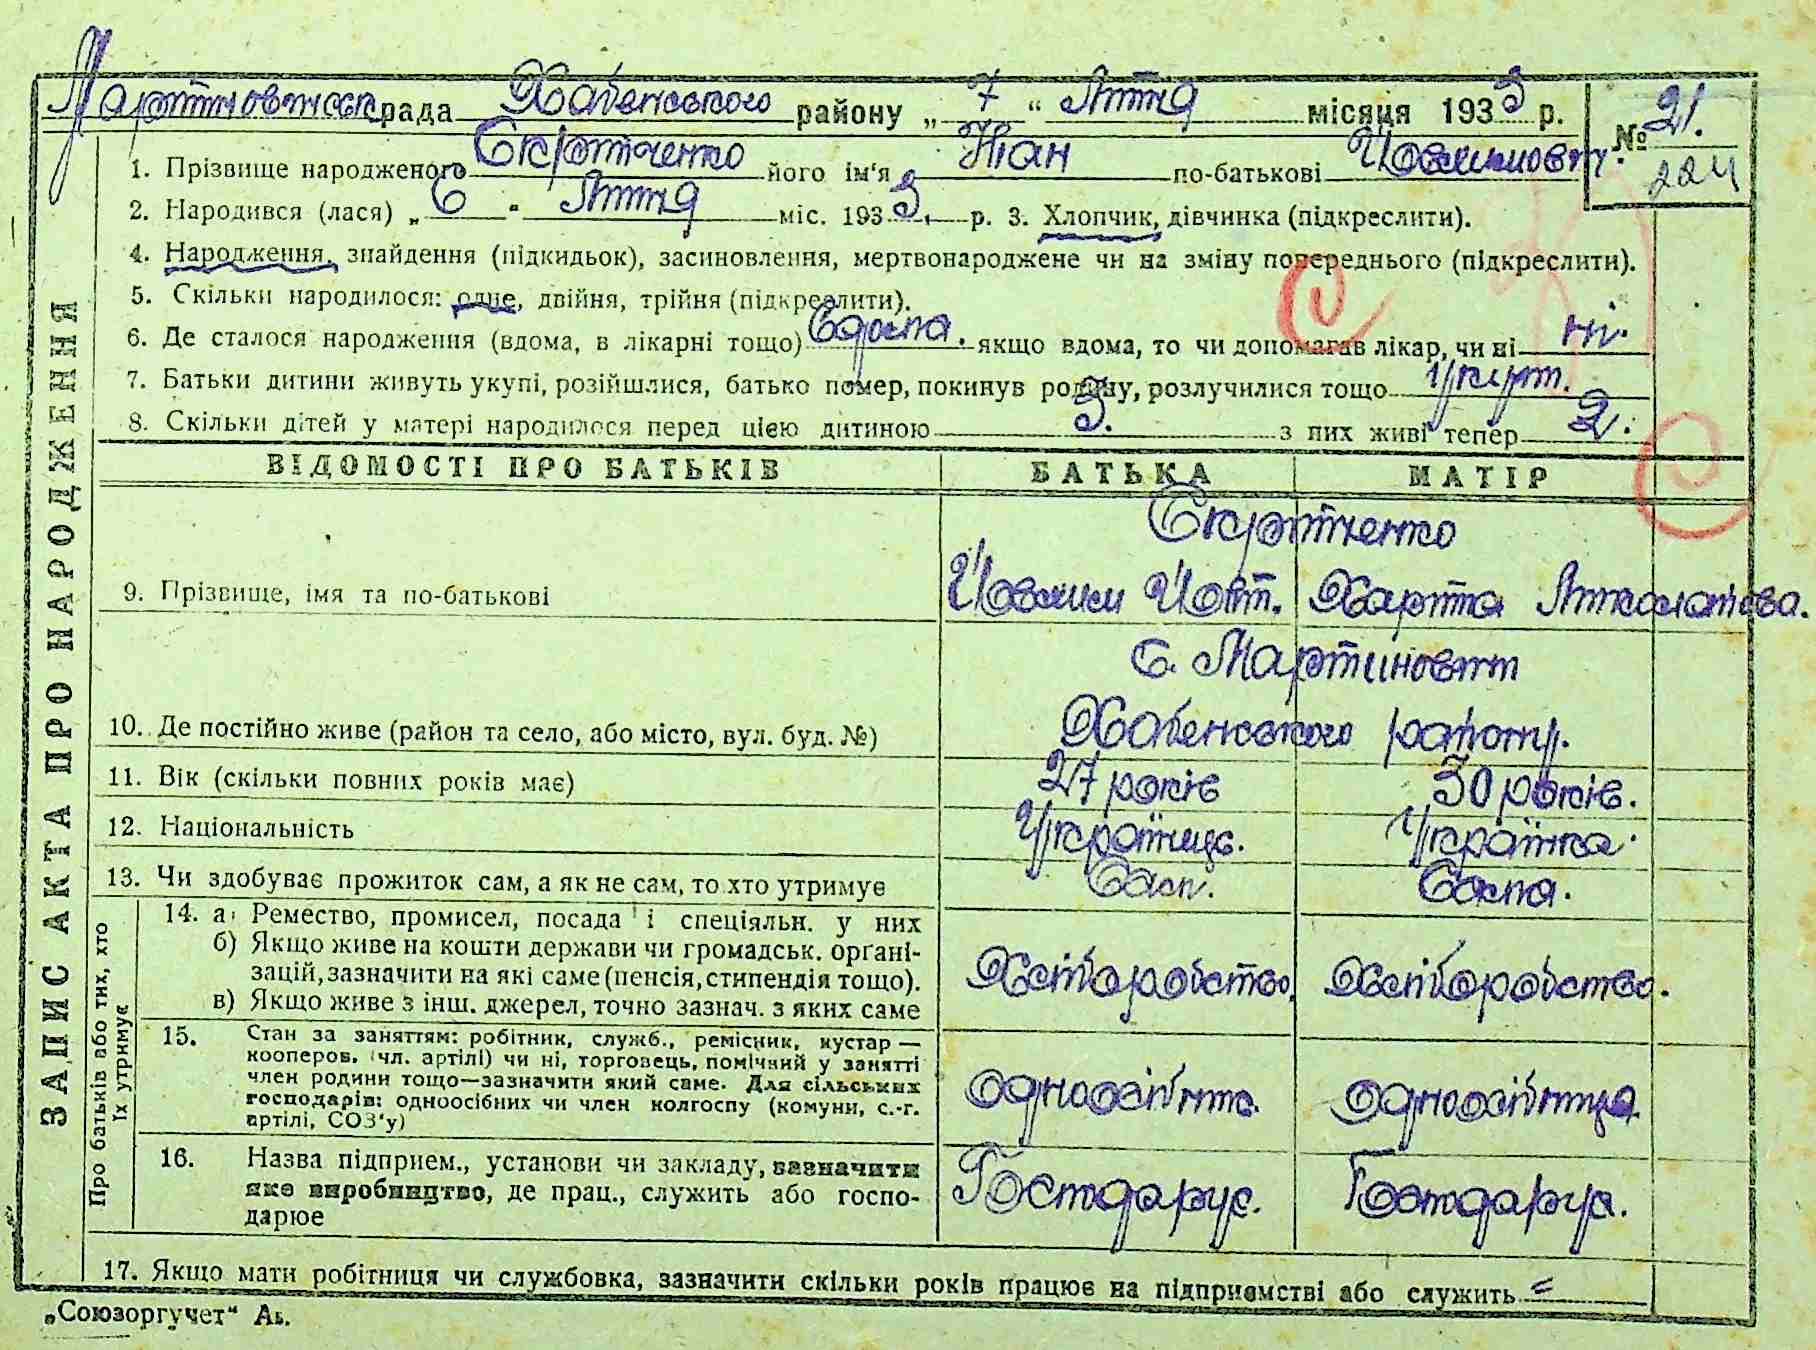 Мартиновицька рада Хабенського району „ 7 “ Липня місяця 1933 р.
№ 21.
224
1. Прізвище народженого його ім'я Іван по-батькові
2. Народився (лася) „ 6 “ Липня міс. 1933. р. 3. Хлопчик, дівчинка (підкреслити).
4. Народження, знайдення (підкидьок), засиновлення, мертвонароджене чи на зміну попереднього (підкреслити).
5. Скільки народилося: одне, двійня, трійня (підкреслити).
6. Де сталося народження (вдома, в лікарні тощо) Вдома. якщо вдома, то чи допомагав лікар, чи ні ні.
7. Батьки дитини живуть укупі, розійшлися, батько помер, покинув родину, розлучилися тощо укупі.
8. Скільки дітей у матері народилося перед цією дитиною 3. з них живі тепер 2.
ЗАПИС АКТА ПРО НАРОДЖЕННЯ
ВІДОМОСТІ ПРО БАТЬКІВ БАТЬКА МАТІР
9. Прізвище, імя та по-батькові
с. Мартиновичі
10. Де постійно живе (район та село, або місто, вул. буд. №) Хабенського району.
11. Вік (скільки повних років має) 27 років 30 років.
12. Національність Українець. Українка.
13. Чи здобуває прожиток сам, а як не сам, то хто утримує Сам. Сама.
Про батьків або тих, хто їх утримує
14. а) Ремество, промисел, посада і спеціяльн. у них
б) Якщо живе на кошти держави чи громадськ. органі-
зацій, зазначити на які саме (пенсія, стипендія тощо). Хліборобство. Хліборобство.
в) Якщо живе з інш. джерел, точно зазнач. з яких саме
15. Стан за заняттям: робітник, служб., ремісник, кустар —
кооперов. (чл. артілі) чи ні, торговець, помічний у занятті
член родини тощо—зазначити який саме. Для сільських
господарів: одноосібних чи член колгоспу (комуни, с.-г. Одноосібник. Одноосібниця.
артілі, СОЗ'у)
16. Назва підприєм., установи чи закладу, зазначити
яке виробництво, де прац., служить або госпо- Господарує. Господарує.
дарює
17. Якщо мати робітниця чи службовка, зазначити скільки років працює на підприємстві або служить =
„Союзоргучет“ Аь.